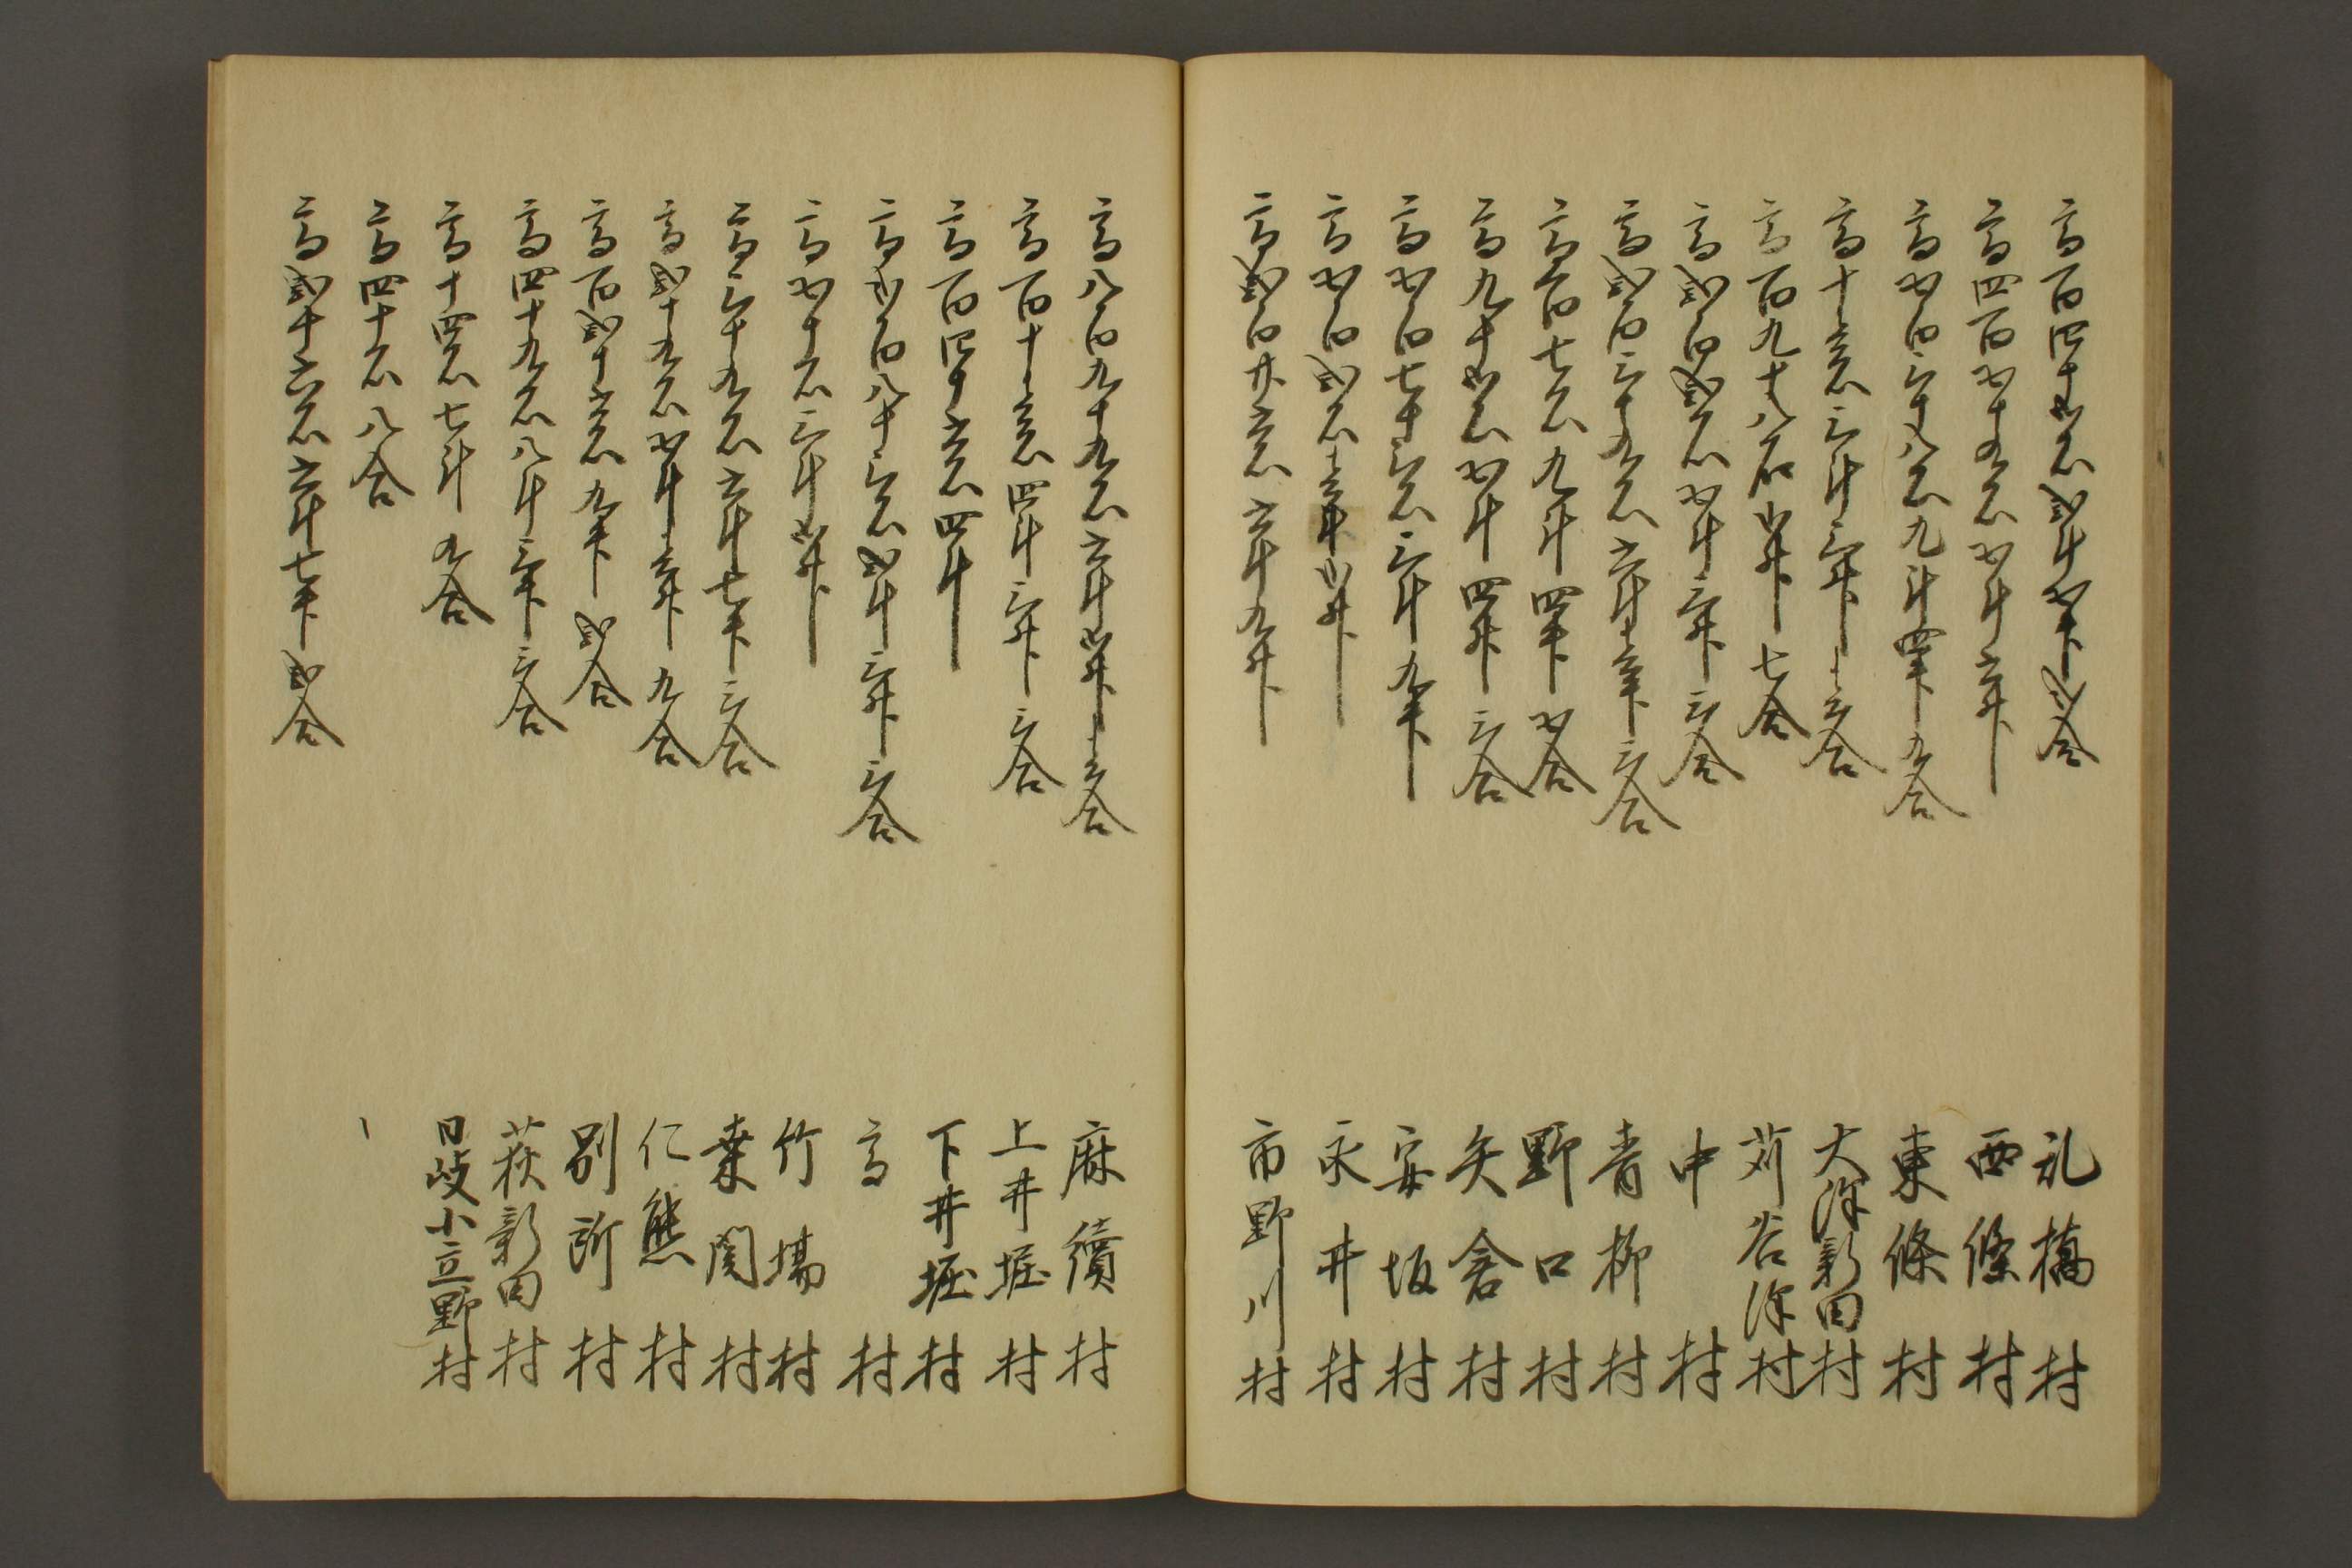 高百四十五石弐斗五升弐合 乱橋村
高四百五十九石五斗六升 西條村
高五百六十八石九斗四升九合 東條村
高十壱石三斗三升壱合 大沢新田村
高百九十八石五升七合 苅谷沢村
高弐百弐石五斗三升三合 中村
高弐百三十九石六斗壱升三合 青柳村
高百七石九斗四升五合 野口村
高九十五石五斗四升三合 矢倉村
高五百七十三石三斗九升 安坂村
高五百弐石壱斗五升 永井村
高弐百廿六石六斗九升 市野川村
高八百九十九石六斗五升壱合 麻續村
高百十壱石四斗三升三合 上井堀村
高百四十六石四斗 下井堀村
高五百八十三石弐斗三升三合 高村
高五十石三斗五升 竹場村
高三十九石六斗七升三合 桑関村
高弐十九石五斗壱升九合 仁熊村
高百弐十六石九升弐合 別所村
高四十九石八斗三升三合 萩新田村
高十四石七斗九合 日岐小立野村
高四十石八合
高弐十六石六斗七升弐合